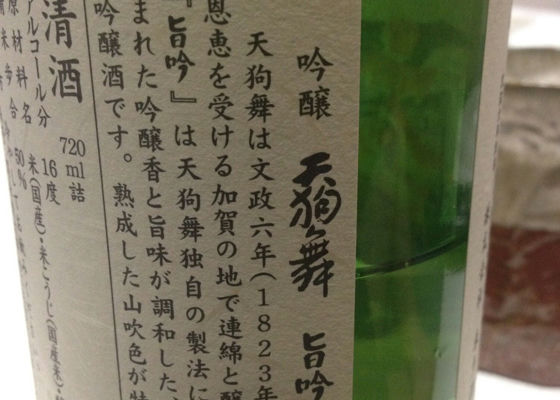 吟醸 天狗舞 旨吟
天狗舞は文政六年(1823年
恩恵を受ける加賀の地で連綿と醸
『旨吟』は天狗舞独自の製法に
まれた吟醸香と旨味が調和した、
吟醸酒です。熟成した山吹色が特
清酒 720ml詰
アルコール分 16度
原材料名 米(国産)・米こうじ(国産米)・
精米歩合 50%